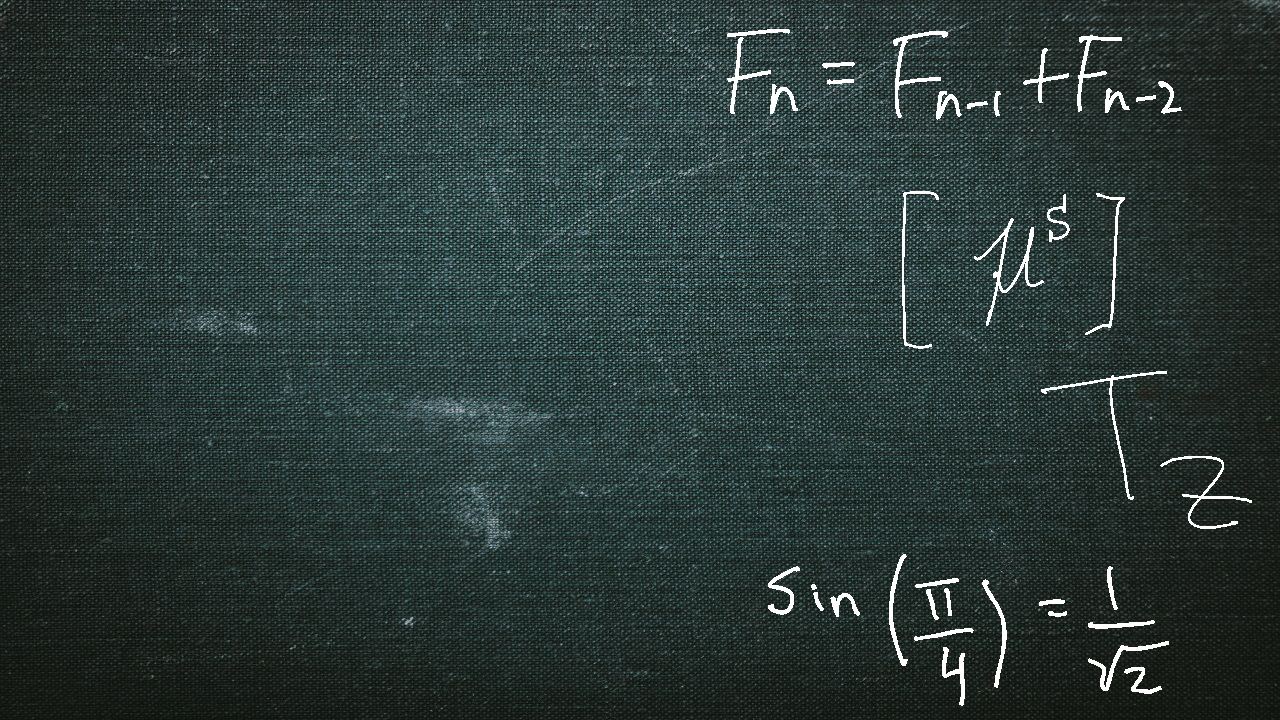 F_n = F_{n-1} + F_{n-2}
[ μ^s ]
T_z
sin(π/4) = 1/√2